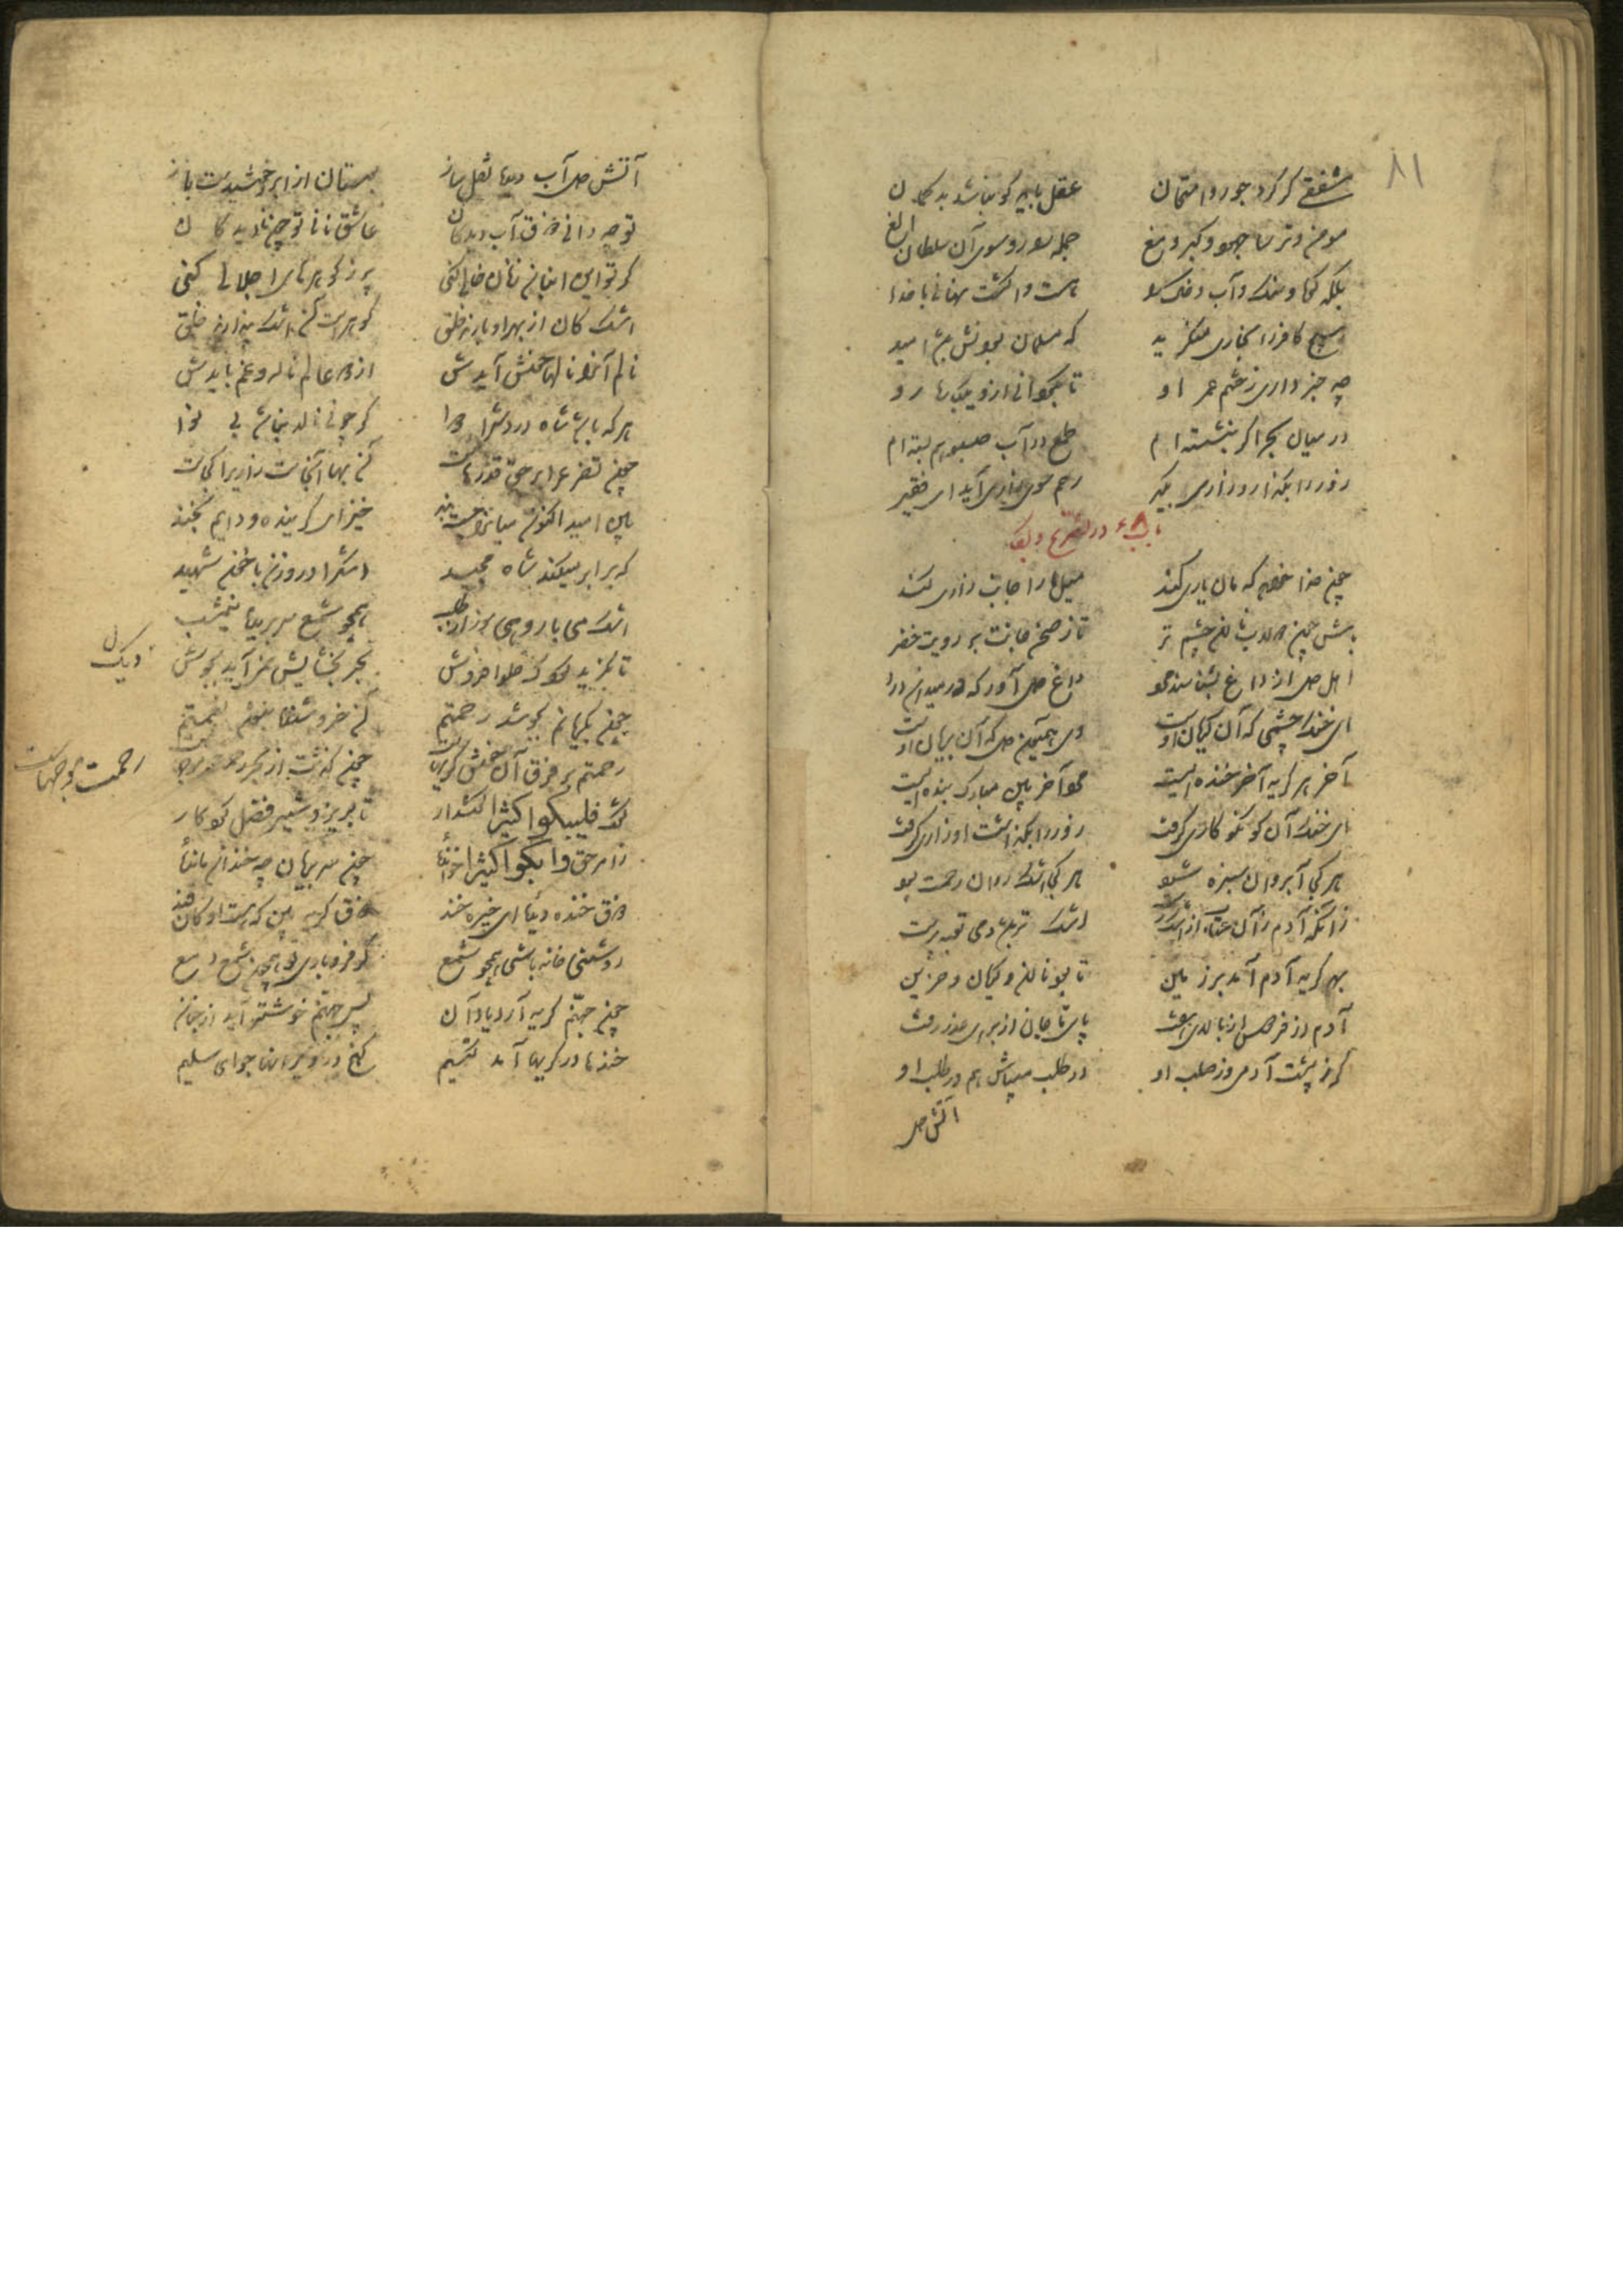 ۸۱
مشفقی گر کرد جور و امتحان عقل باید کو نباشد بدگمان
مومن و ترسا جهود و گبر و مغ جمله را رو سوی آن سلطان الغ
بلکه خاک و سنگ و آب و
هیچ کافر را بخواری منگرید که مسلمان بودنش باشد امید
چه خبر داری ز ختم عمر او تا بگردانی ازو یکباره رو
در میان بحر اگر بنشسته ام طمع در آب سبو هم بسته ام
زور را بگذار و زاری بگیر رحم سوی زاری آید ای فقیر
در تضرع و بکا
چون خدا خواهد که مان یاری کند میل ما را جانب زاری کند
باش چون دولاب نالان چشم تر تا ز صحن جانت بر روید خضر
اهل دل از داغ بشناسند مر
ای خنک چشمی که آن گریان اوست وی همایون دل که آن بریان اوست
آخر هر گریه آخر خنده ایست مرد آخر بین مبارک بنده ایست
ای خنک آن کو نکوکاری گرفت زور را بگذاشت او زاری گرفت
هر کجا آب روان سبزه شود هر کجا اشک روان رحمت بود
زانکه آدم زان عتاب از اشک رست اشک تر باشد دم توبه پرست
بهر گریه آدم آمد بر زمین تا بود نالان و گریان و حزین
آدم از فردوس و از بالای هفت پای ماچان از برای عذر رفت
گر ز پشت آدمی وز صلب او در طلب میباش هم در طلب او
آتش دل
آتش دل آب دیده نقل ساز بوستان از ابر و خورشیدست باز
تو چه دانی ذوق آب دیدگان عاشق نانی تو چون نادیدگان
گر تو این انبان ز نان خالی کنی پر ز گوهرهای اجلالی کنی
اشک کان از بهر او بارند خلق گوهرست و اشک پندارند خلق
نالم ایرا نالها خوش آیدش از دو عالم ناله و غم بایدش
هر که باشد شاه دردش را دوا گر چو نی نالد نباشد بی نوا
چون تضرع را بر حق قدرهاست آن بها آنجاست زاری را کجاست
هین امید اکنون میان را چست بند خیز ای گرینده و دایم بخند
که برابر میکند شاه مجید اشک را در وزن با خون شهید
اشک می بار و همی سوز از طلب همچو شمع سر بریده نیمشب
تا نگرید کودک حلوا فروش بحر بخشایش نمی آید بجوش
دیگ
چون بگریانم بجوشد رحمتم آن خروشنده بنوشد نعمتم
رحمتم موقوف آن خوش گریهاست چون گریست از بحر رحمت موج خاست
رحمت موجهاست
گفت فلیبکوا کثیرا گوش دار تا بریزد شیر فضل کردگار
ز امر حق وابکوا کثیرا خوانده چون سر بریان چه خندان مانده
ذوق خنده دیده ای خیره خند ذوق گریه بین که هست او کان قند
روشنی خانه باشی همچو شمع گر فرو باری تو همچون شمع دمع
چون جهنم گریه آرد یاد آن پس جهنم خوشتر آید از جنان
خندها در گریها آمد کتیم گنج در ویرانها جوای سلیم